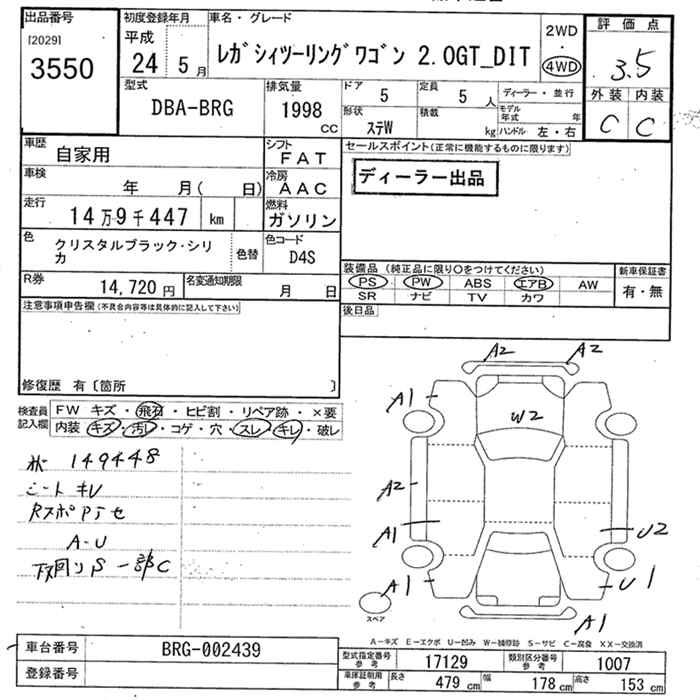 出品番号 初度登録年月 車名・グレード 評価点
[2029] 平成 2WD
3550 24 5月 レガシィツーリングワゴン 2.0GT_DIT ・ 3.5
4WD
型式 排気量 ドア 5 定員 5人 ディーラー・並行 外装 内装
DBA-BRG 1998cc 形状 ステW 積載 kg モデル年式 年 C C
ハンドル 左・右
車歴 自家用 シフト FAT セールスポイント(正常に機能するものに限ります)
車検 年 月( 日) 冷房 AAC ディーラー出品
走行 14万9千447 km 燃料 ガソリン
色 クリスタルブラック・シリカ 色替 色コード D4S
装備品(純正品に限り〇をつけてください) 新車保証書
R券 14,720円 名変通知期限 月 日 PS PW ABS エアB AW 有・無
SR ナビ TV カワ
注意事項申告欄(不具合内容等は具体的に記入して下さい) 後日品
修復歴 有〔箇所 〕
検査員記入欄 FW キズ・飛石・ヒビ割・リペア跡・×要
内装 キズ・汚レ・コゲ・穴・スレ・キレ・破レ
A2 A2
A1 W2
149448
シート キレ
A2
A1 U2
A-U
下回りS 一部C
A1 U1
スペア
A1
A-キズ E-エクボ U-凹み W-補修跡 S-サビ C-腐食 XX-交換済
車台番号 BRG-002439 型式指定番号 参考 17129 類別区分番号 参考 1007
登録番号 車庫証明用 参考 長さ 479cm 幅 178cm 高さ 153cm